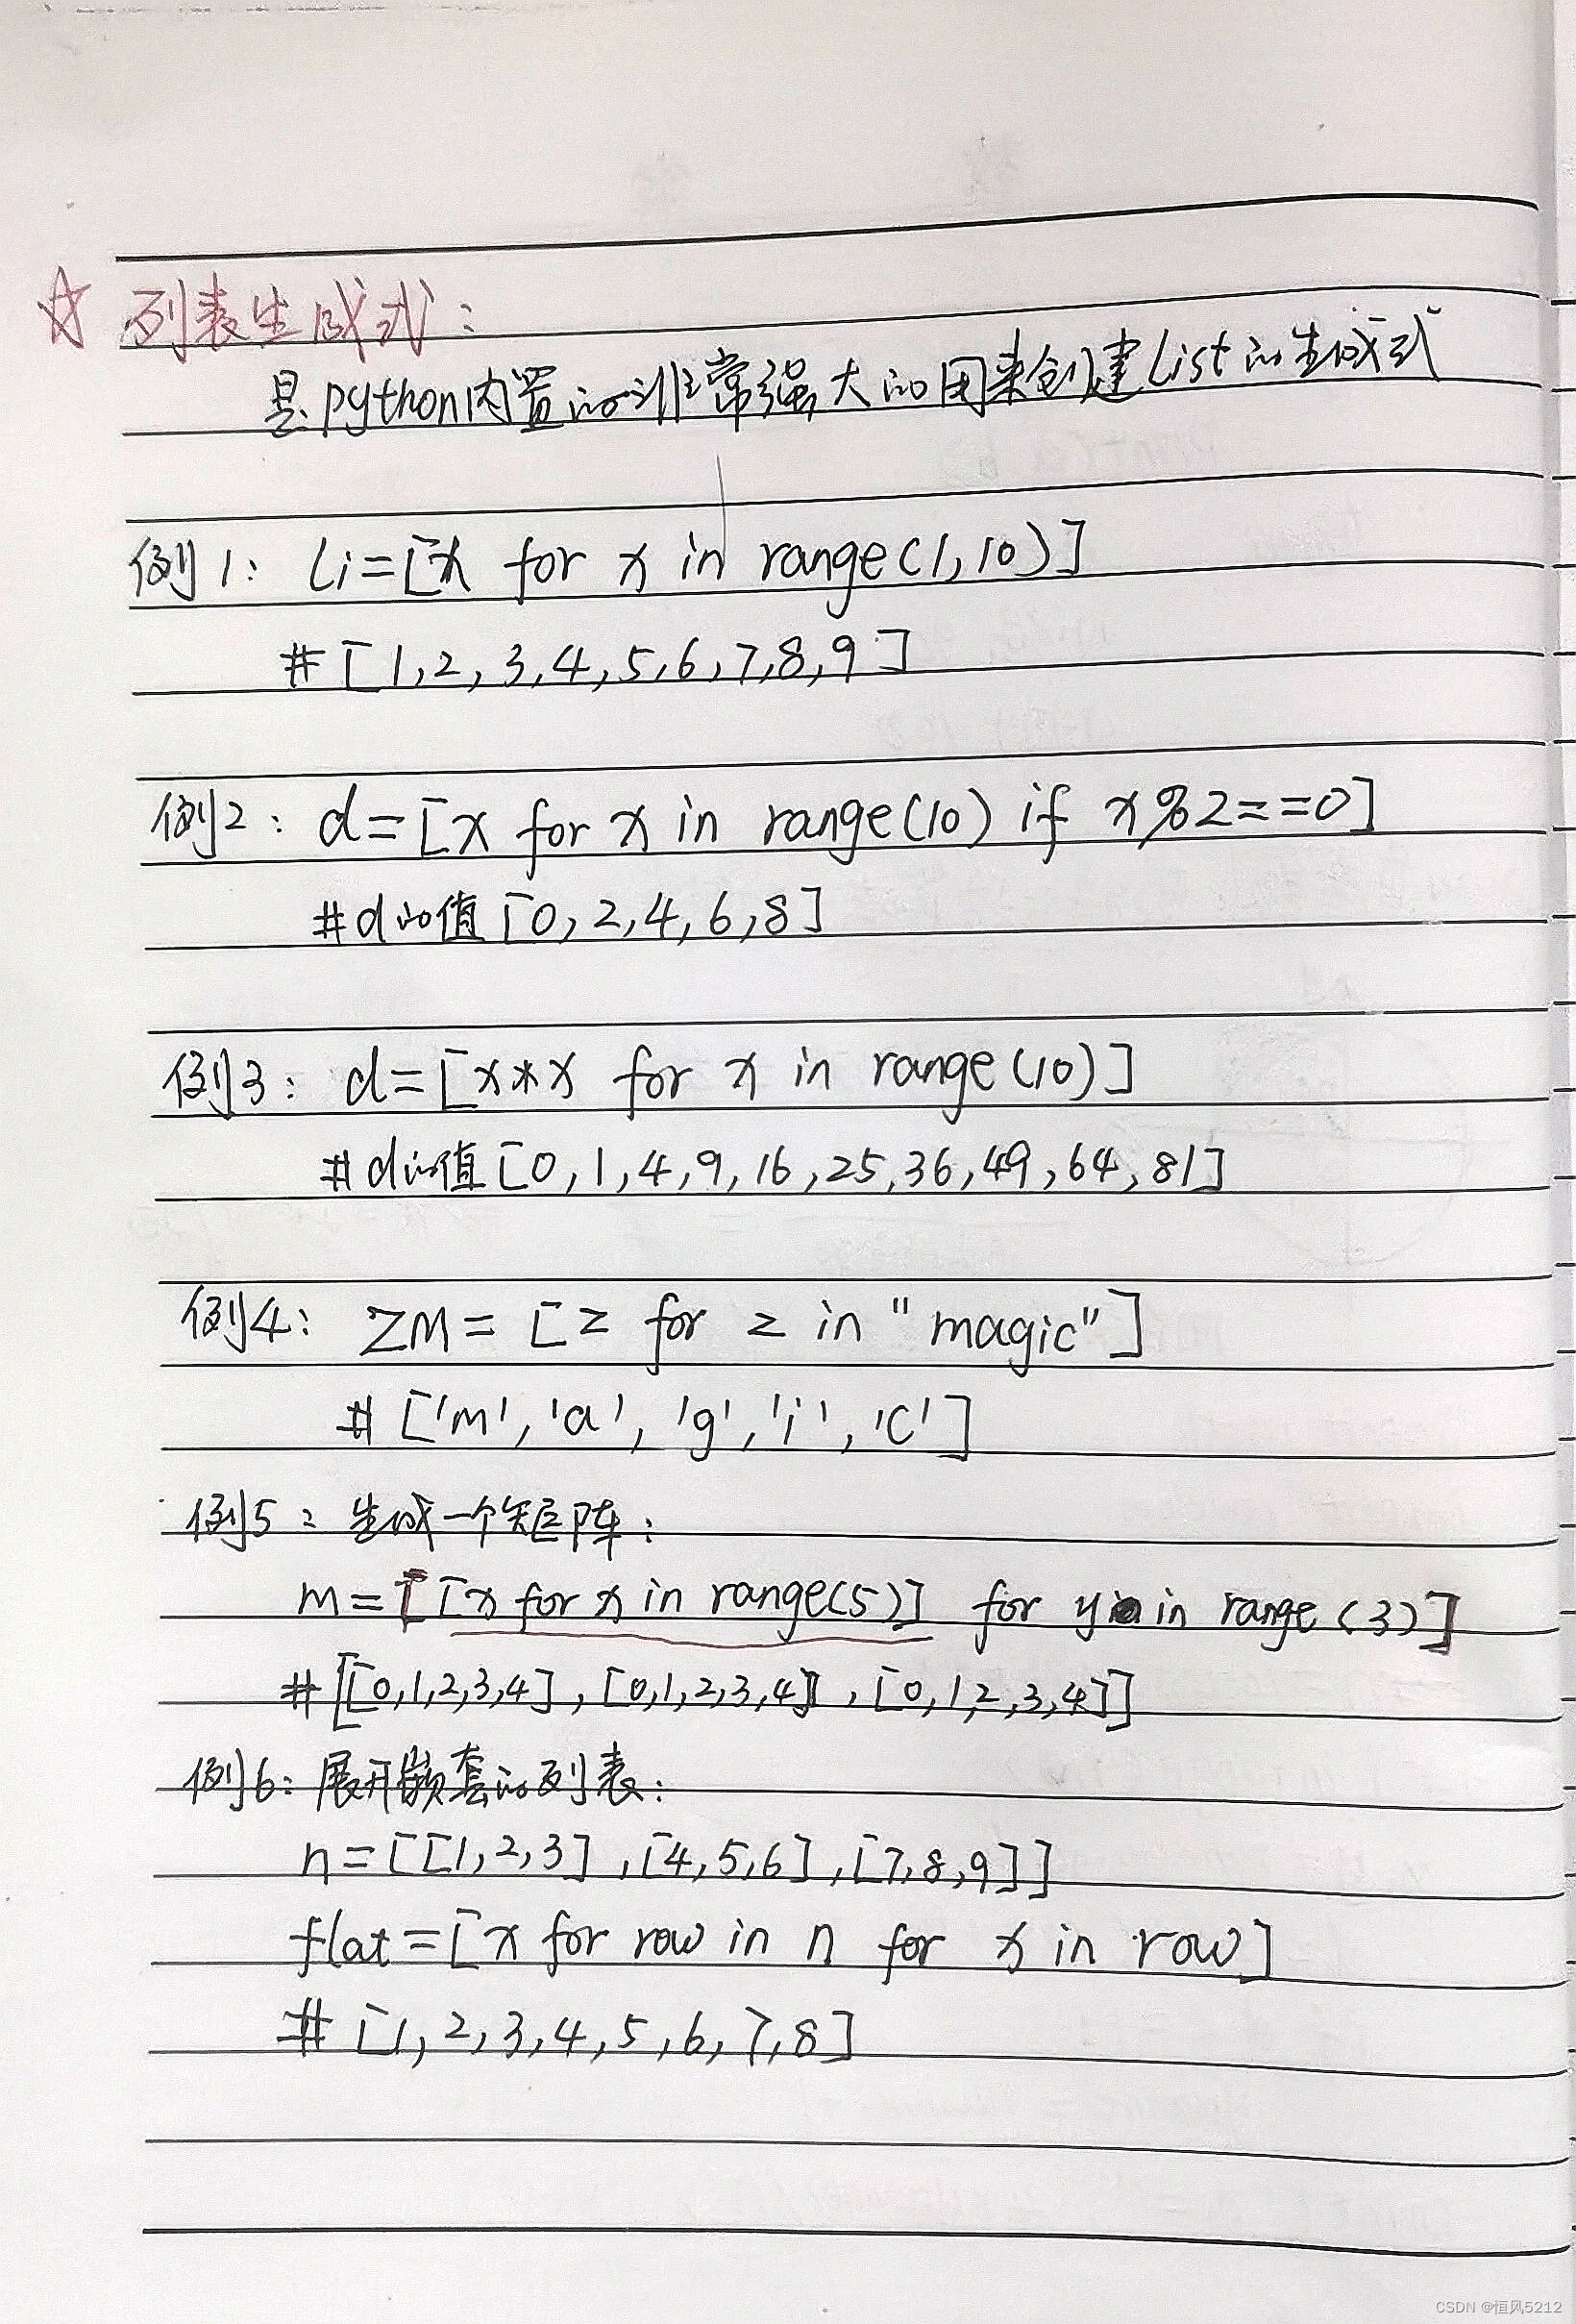 ☆ 列表生成式:
是python内置的非常强大的用来创建list的生成式
例1: li=[x for x in range(1,10)]
#[1,2,3,4,5,6,7,8,9]
例2: d=[x for x in range(10) if x%2==0]
#d的值[0,2,4,6,8]
例3: d=[x*x for x in range(10)]
#d的值[0,1,4,9,16,25,36,49,64,81]
例4: ZM=[z for z in "magic"]
#['m','a','g','i','c']
例5: 生成一个矩阵:
m=[[x for x in range(5)] for y in range(3)]
#[[0,1,2,3,4],[0,1,2,3,4],[0,1,2,3,4]]
例6: 展开嵌套的列表:
n=[[1,2,3],[4,5,6],[7,8,9]]
flat=[x for row in n for x in row]
#[1,2,3,4,5,6,7,8]
CSDN @恒风5212